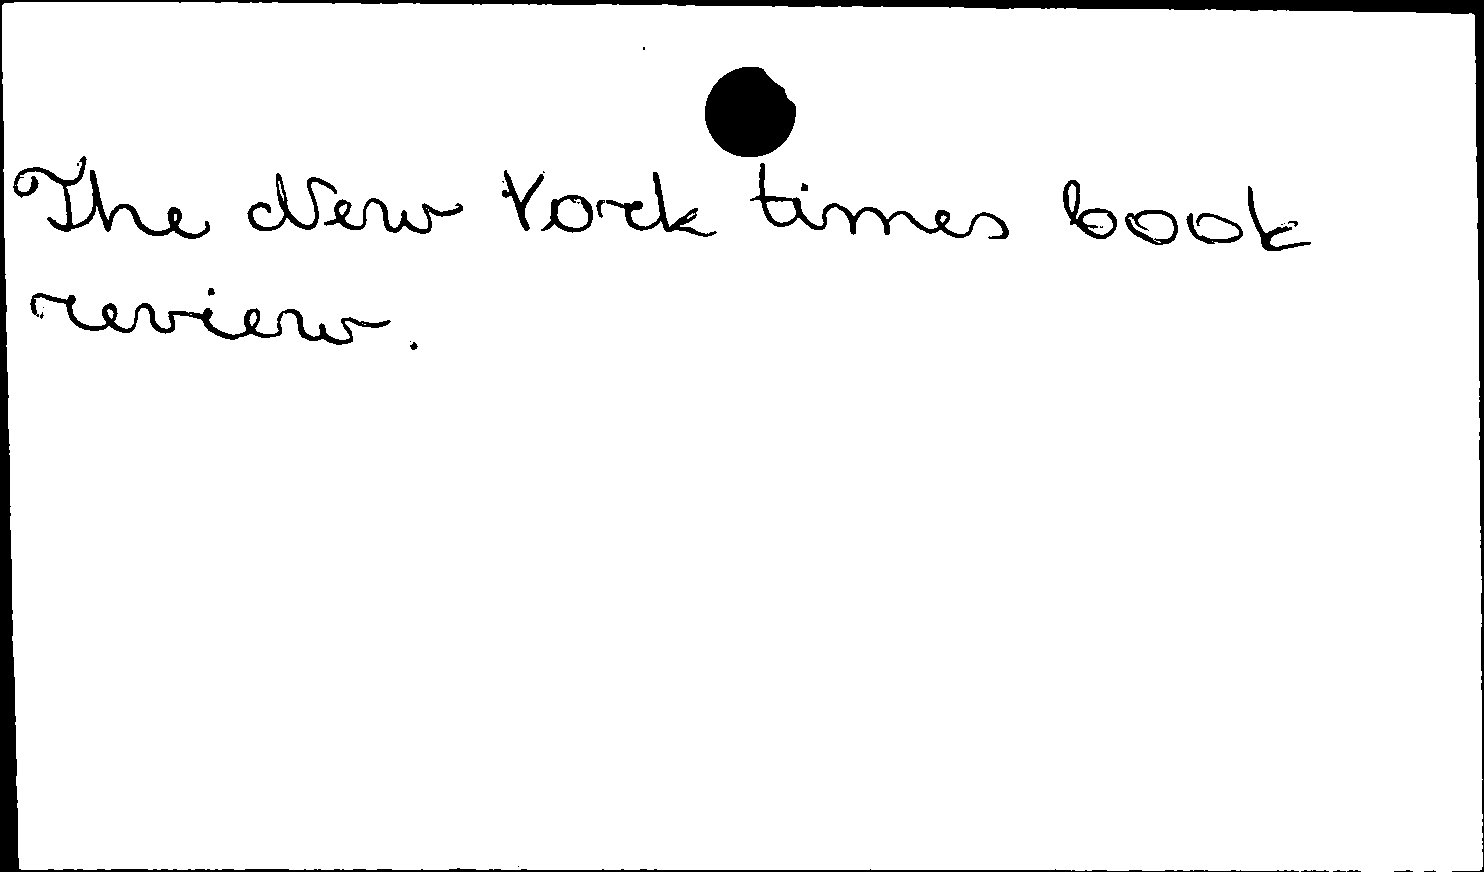 The New York times book
review.